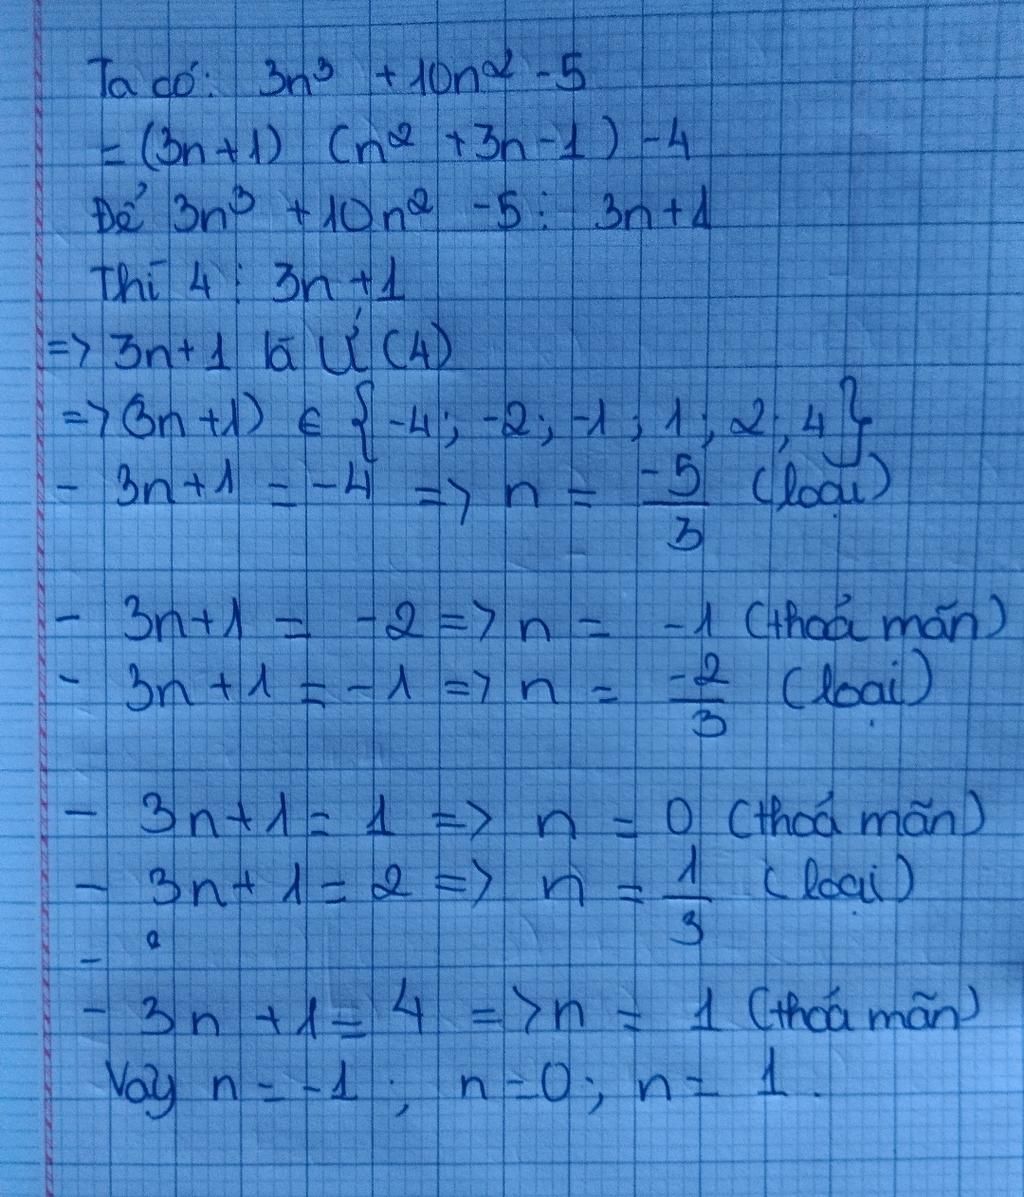 Ta có: 3n³ + 10n² - 5
= (3n+1) (n² + 3n - 1) - 4
Để 3n³ + 10n² - 5 ⋮ 3n+1
Thì 4 ⋮ 3n+1
=> 3n+1 là Ư (4)
=> (3n+1) ∈ {-4; -2; -1; 1; 2; 4}
- 3n+1 = -4 => n = -5/3 (loại)
- 3n+1 = -2 => n = -1 (thoả mãn)
- 3n+1 = -1 => n = -2/3 (loại)
- 3n+1 = 1 => n = 0 (thoả mãn)
- 3n+1 = 2 => n = 1/3 (loại)
-
- 3n+1 = 4 => n = 1 (thoả mãn)
Vậy n = -1; n = 0; n = 1.